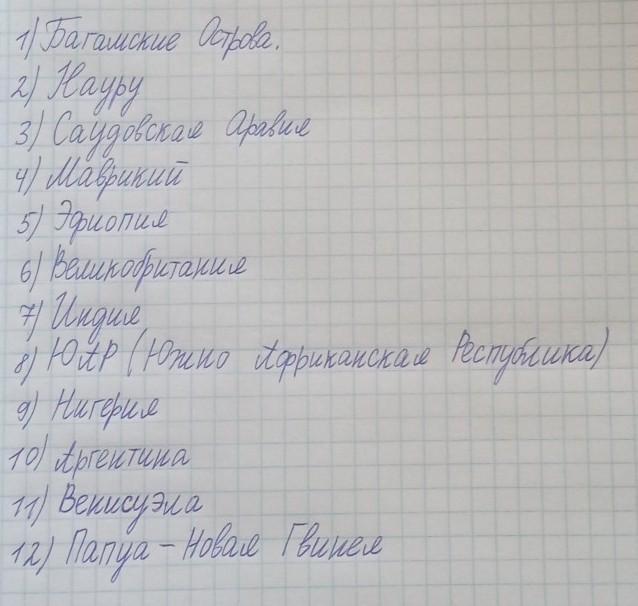 1) Багамские Острова.
2) Науру
3) Саудовская Аравия
4) Маврикий
5) Эфиопия
6) Великобритания
7) Индия
8) ЮАР (Южно Африканская Республика)
9) Нигерия
10) Аргентина
11) Венисуэла
12) Папуа - Новая Гвинея